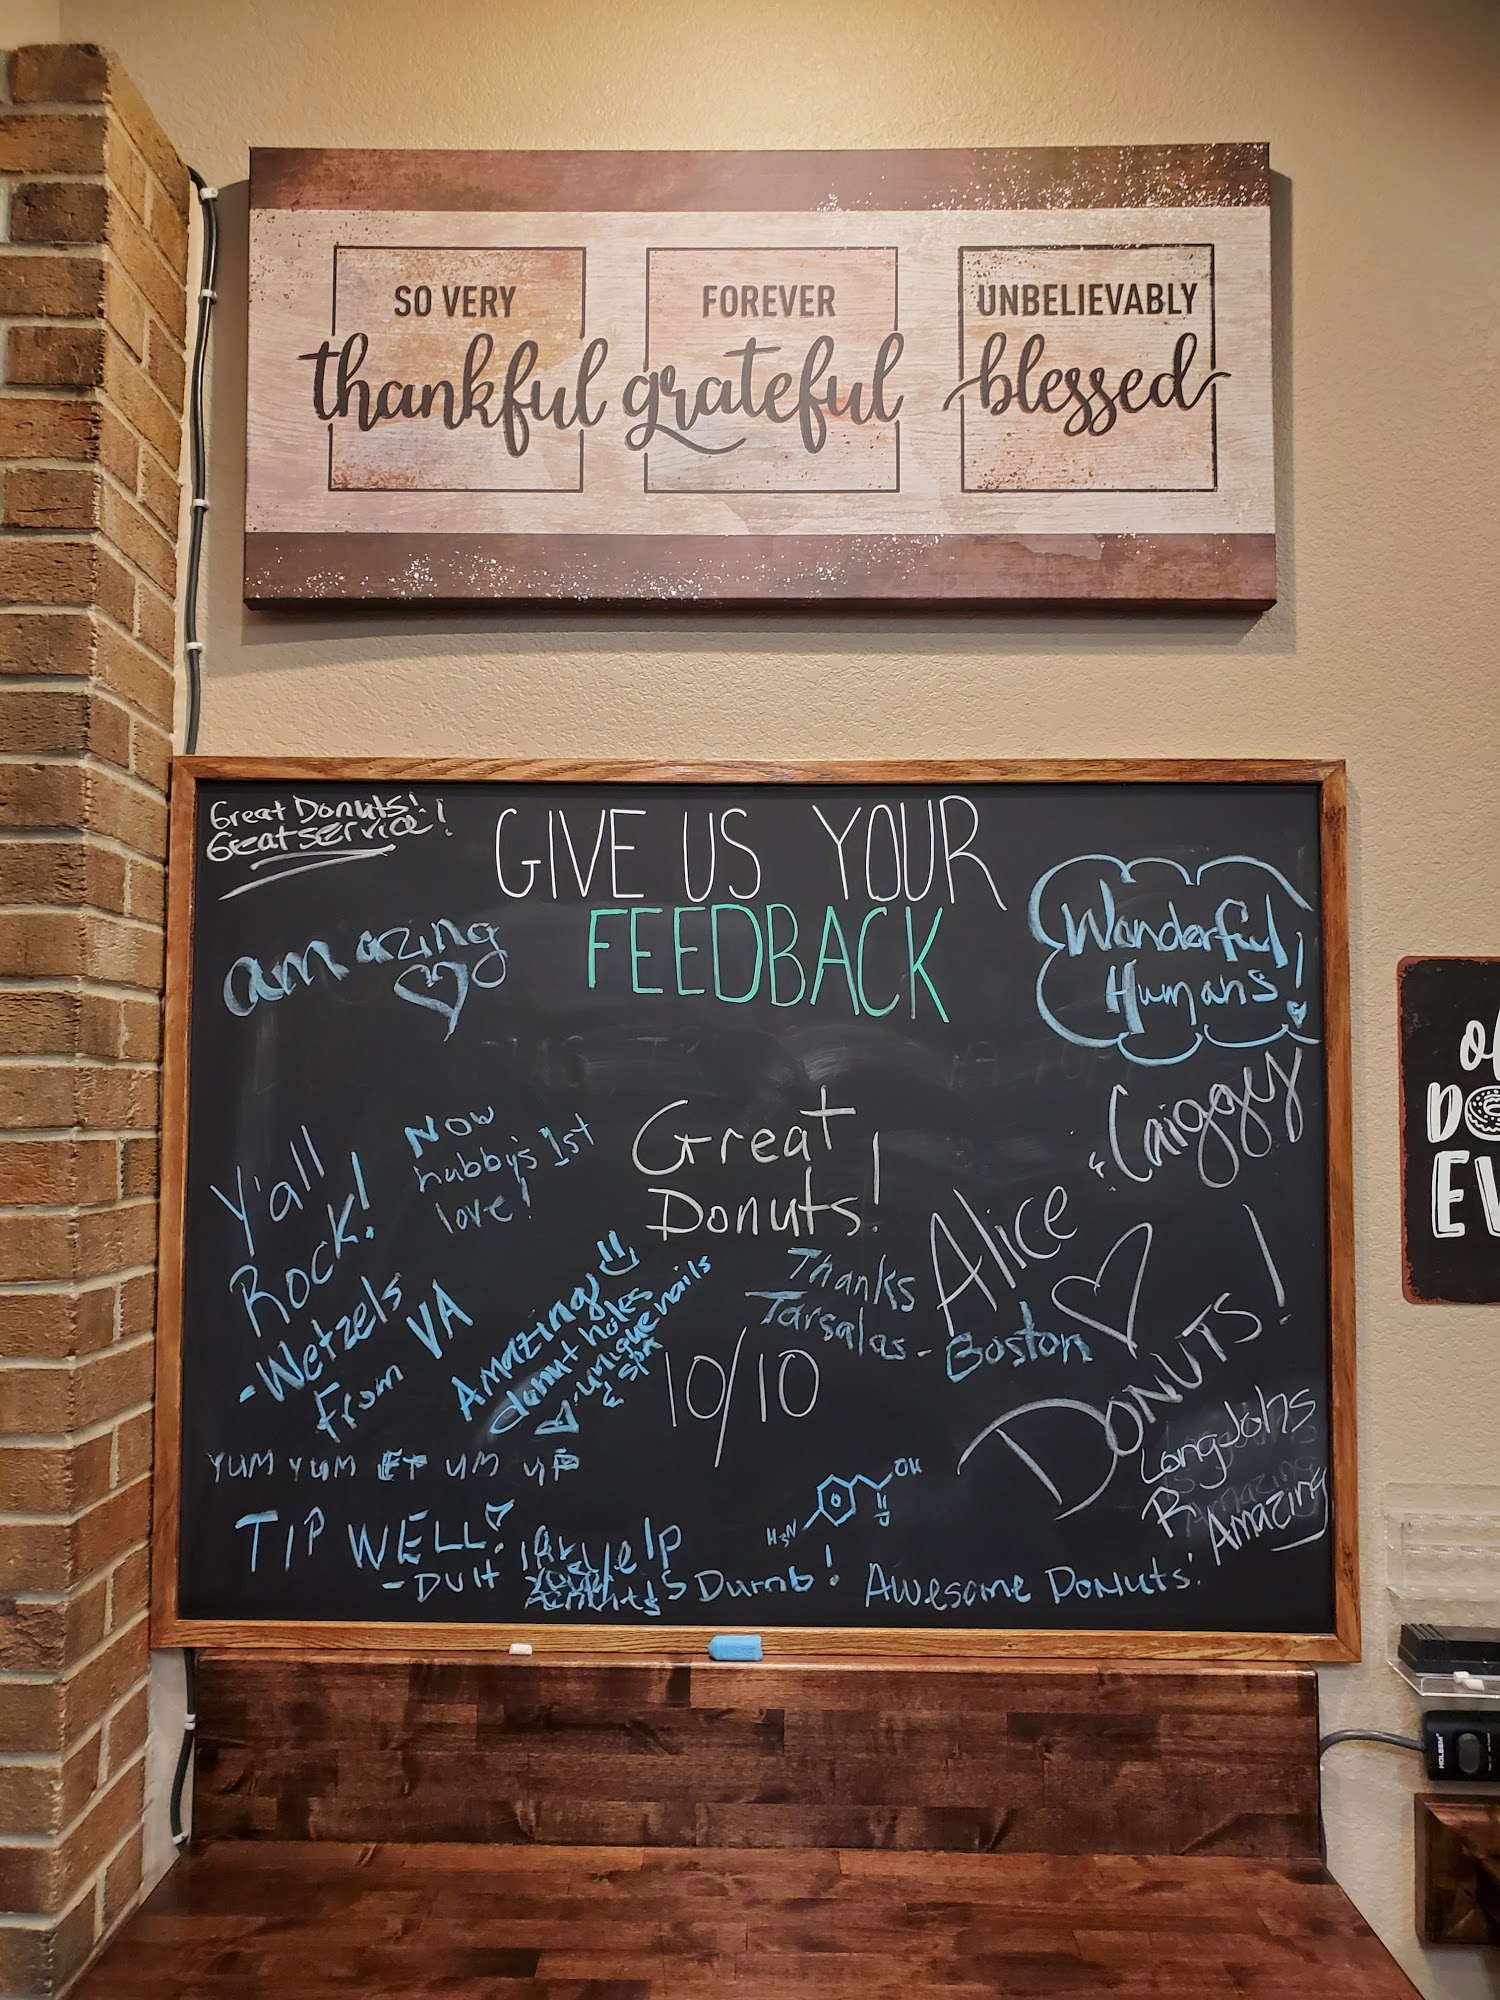 SO VERY
thankful
FOREVER
grateful
UNBELIEVABLY
blessed
Great Donuts!
Great service!
GIVE US YOUR
FEEDBACK
amazing
Wonderful
Humans!
Y'all
Rock!
-Wetzels
From VA
Now
hubby's 1st
love!
Great
Donuts!
Craiggy
&
Alice
Amazing
donut holes
unique nails
& spa
Thanks
Tarsalas - Boston
10/10
DONUTS!
LongJohs
R
Amazing
YUM YUM
UM
TIP WELL!
H2N
OH
Dumb!
Awesome Donuts!
D
EV
HOLSEM